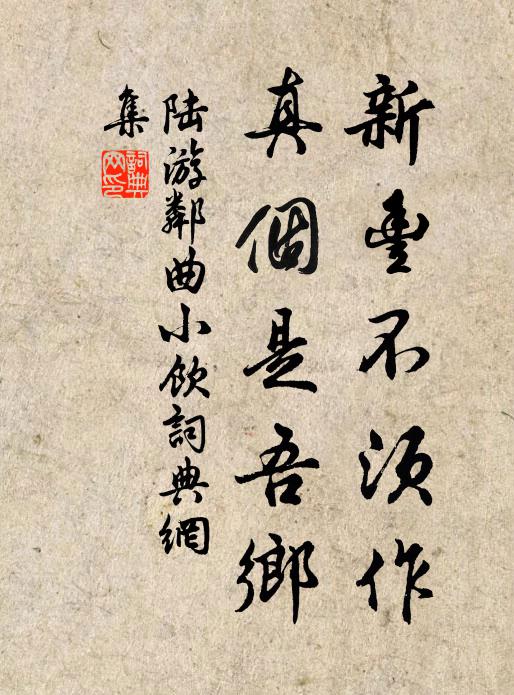 新豐不須作
真個是吾鄉
陸游鄰曲小飲詞典網
集
詞典
网印